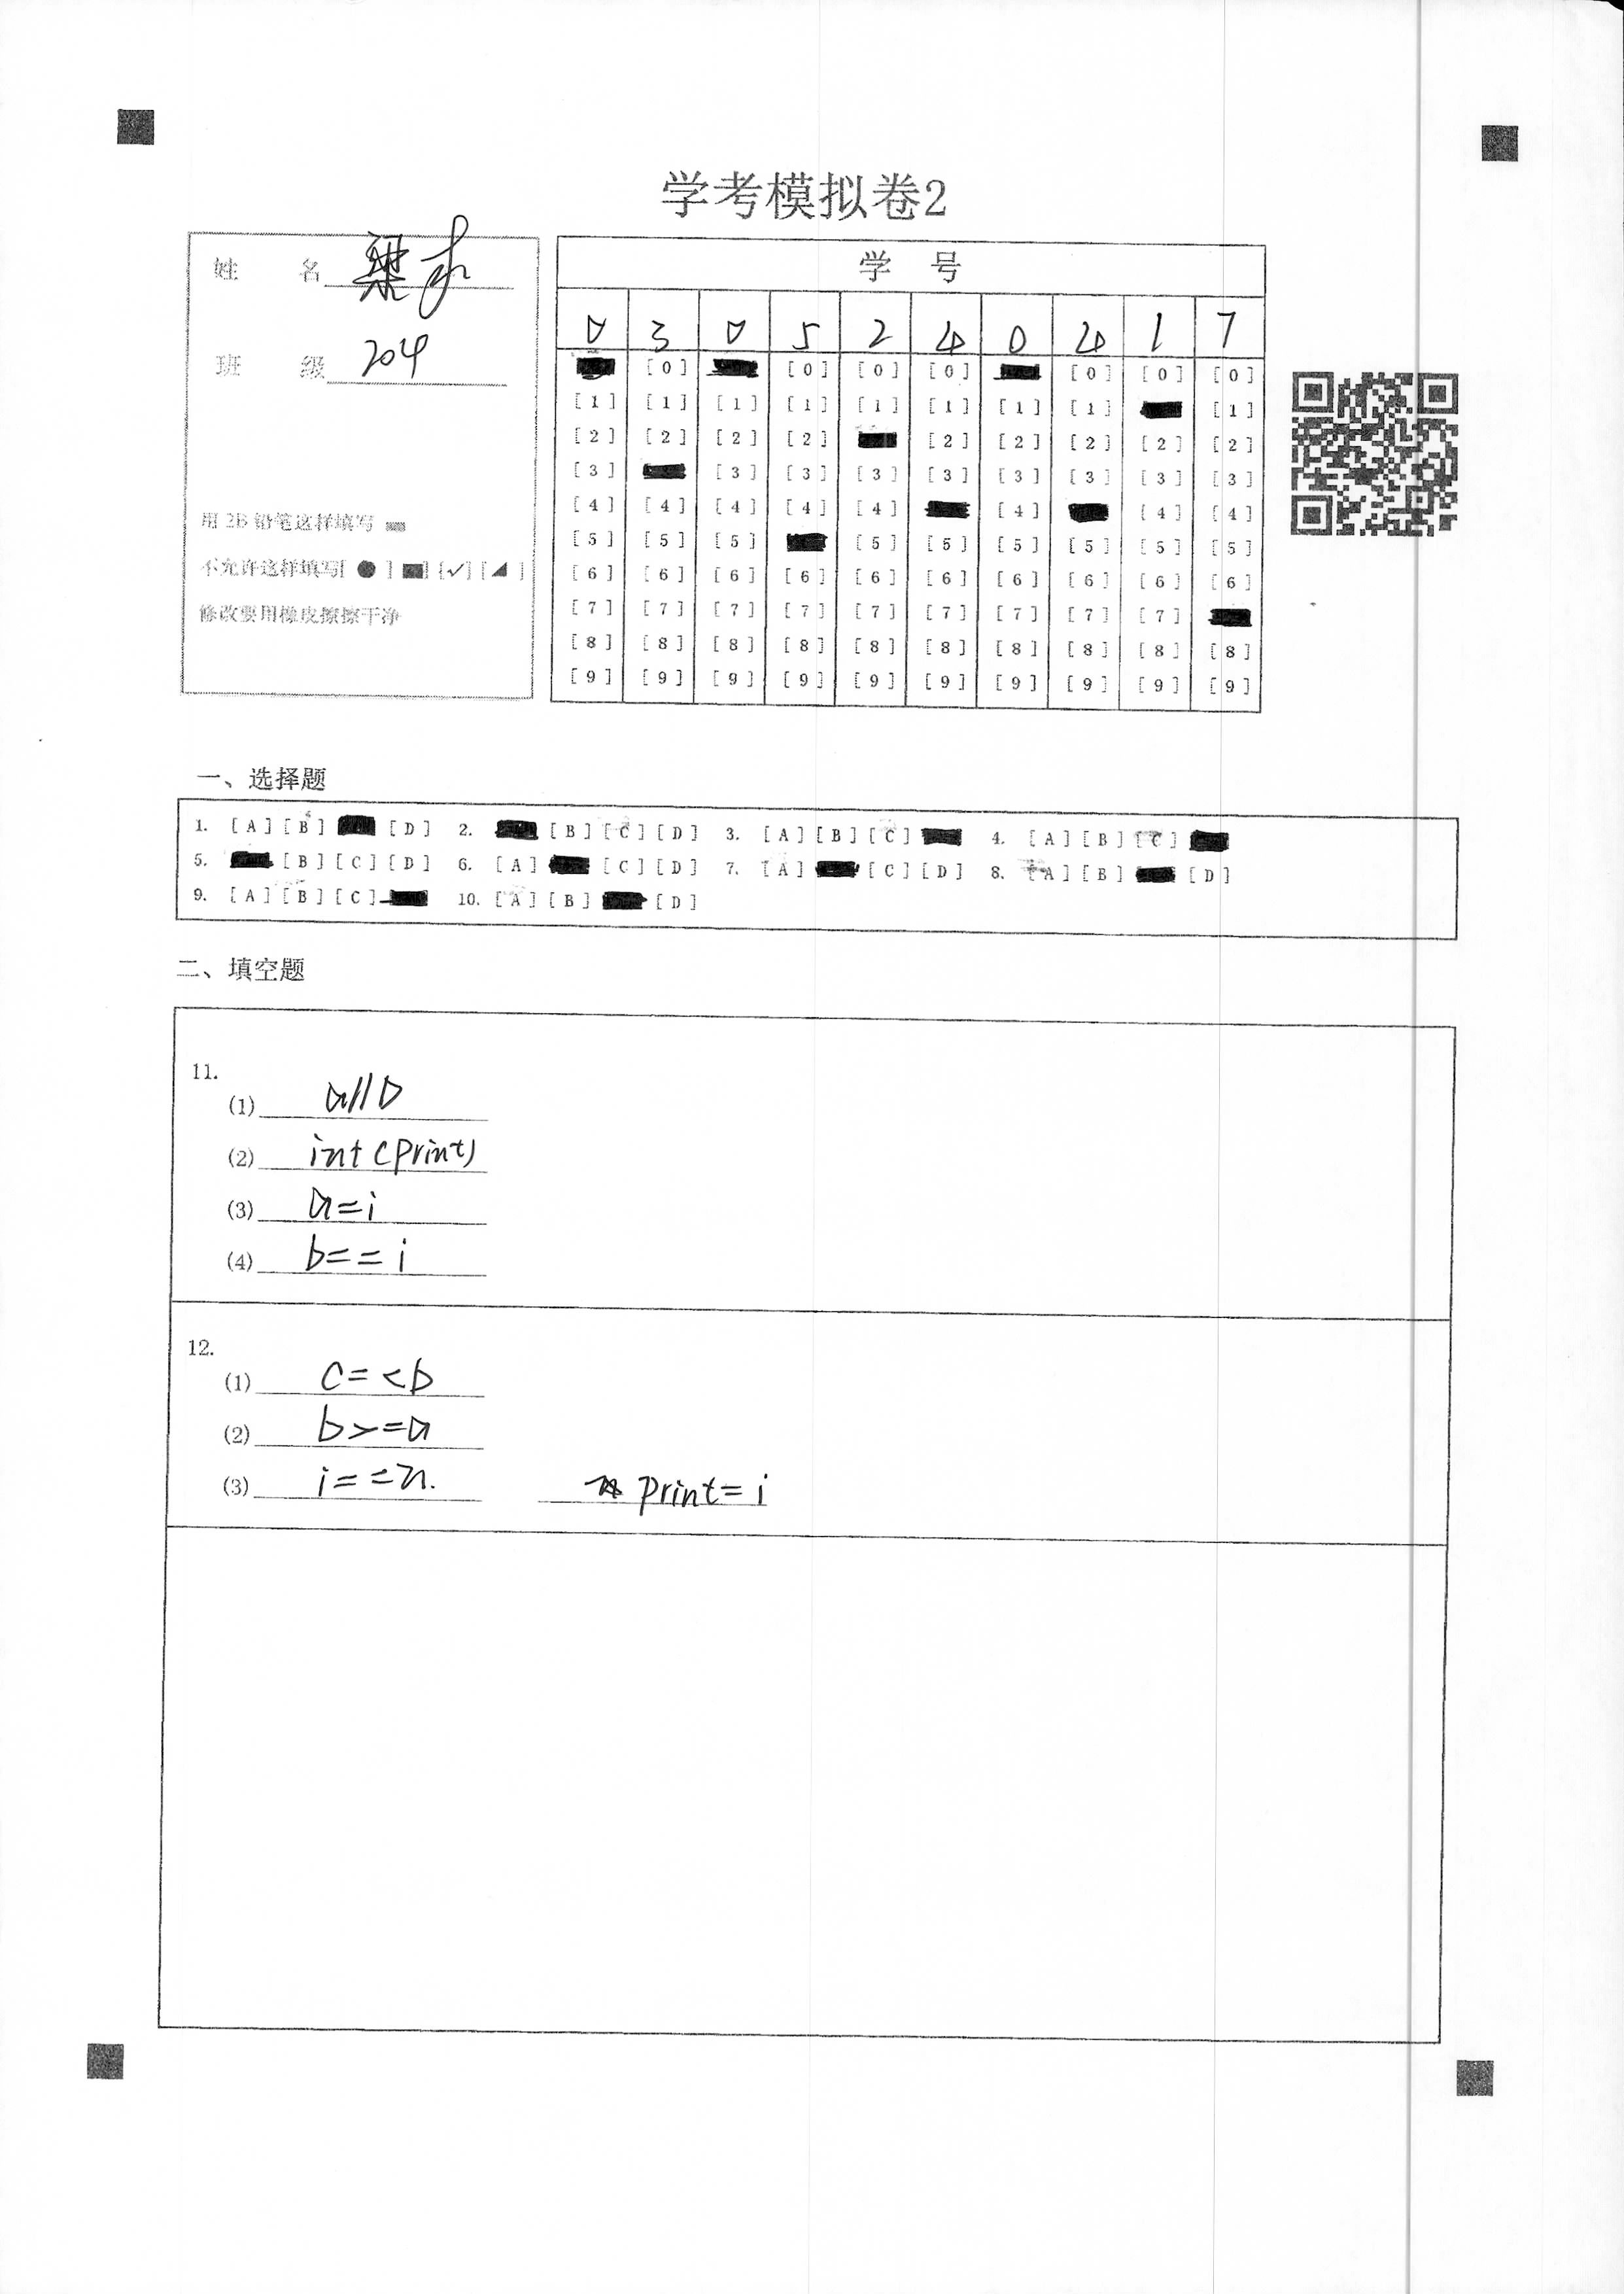 学考模拟卷2
姓 名 梁
班 级 204
用 2B 铅笔这样填写
不允许这样填写[ ● ] [■] [✓] [◢ ]
修改要用橡皮擦擦干净
学 号
0 3 0 5 2 4 0 4 1 7
[0] [0] [0] [0] [0] [0] [0]
[1] [1] [1] [1] [1] [1] [1] [1] [1]
[2] [2] [2] [2] [2] [2] [2] [2] [2]
[3] [3] [3] [3] [3] [3] [3] [3] [3]
[4] [4] [4] [4] [4] [4] [4] [4]
[5] [5] [5] [5] [5] [5] [5] [5] [5]
[6] [6] [6] [6] [6] [6] [6] [6] [6] [6]
[7] [7] [7] [7] [7] [7] [7] [7] [7]
[8] [8] [8] [8] [8] [8] [8] [8] [8] [8]
[9] [9] [9] [9] [9] [9] [9] [9] [9] [9]
一、选择题
1. [A] [B] [D] 2. [B] [C] [D] 3. [A] [B] [C] 4. [A] [B] [C]
5. [B] [C] [D] 6. [A] [C] [D] 7. [A] [C] [D] 8. [A] [B] [D]
9. [A] [B] [C] 10. [A] [B] [D]
二、填空题
11.
(1) a//b
(2) int(print)
(3) a=i
(4) b==i
12.
(1) c=<b
(2) b>=a
(3) i==n. print=i